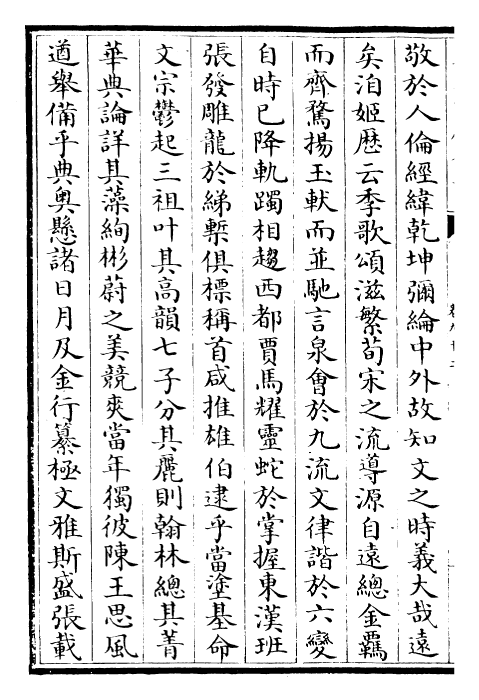 敬於人倫經緯乾坤彌綸中外故知文之時義大哉遠
矣洎姬歴云季歌頌滋繁荀宋之流導源自遠總金羈
而齊騖揚玉軑而並馳言泉會於九流文律諧於六變
自時已降軌躅相趨西都賈馬耀靈蛇於掌握東漢班
張發雕龍於綈槧俱標稱首咸推雄伯逮乎當塗基命
文宗鬱起三祖叶其高韻七子分其麗則翰林總其菁
華典論詳其藻絢彬蔚之美競爽當年獨彼陳王思風
遒舉備乎典奥懸諸日月及金行纂極文雅斯盛張載